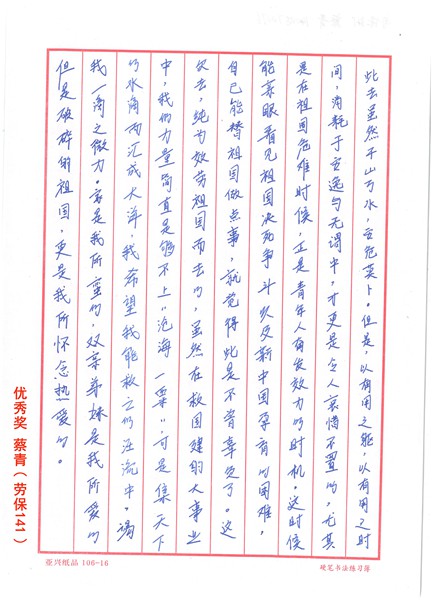 此去虽然千山万水，安危莫卜。但是，以有用之躯，以有用之时
间，消耗于安逸与无谓中，才更是令人哀惜不置的，尤其
是在祖国危难时候，正是青年人有发效力的时机。这时候
能亲眼看见祖国决死争斗以及新中国孕育的困难，
自己能替祖国做点事，就觉得此是不肯辜负了。这
次去，纯为效劳祖国而去的，虽然在救国建的大事业
中，我们力量简直是够不上“沧海一粟”可是集天下
的水滴而汇成大洋，我希望我能救之的汪流中。竭
我一滴之微力。家是我所蛮的，双亲弟妹是我所爱的
但是破碎的祖国，更是我所怀念热爱的。
优秀奖 蔡青（劳保141）
亚兴纸品 106-16
硬笔书法练习簿